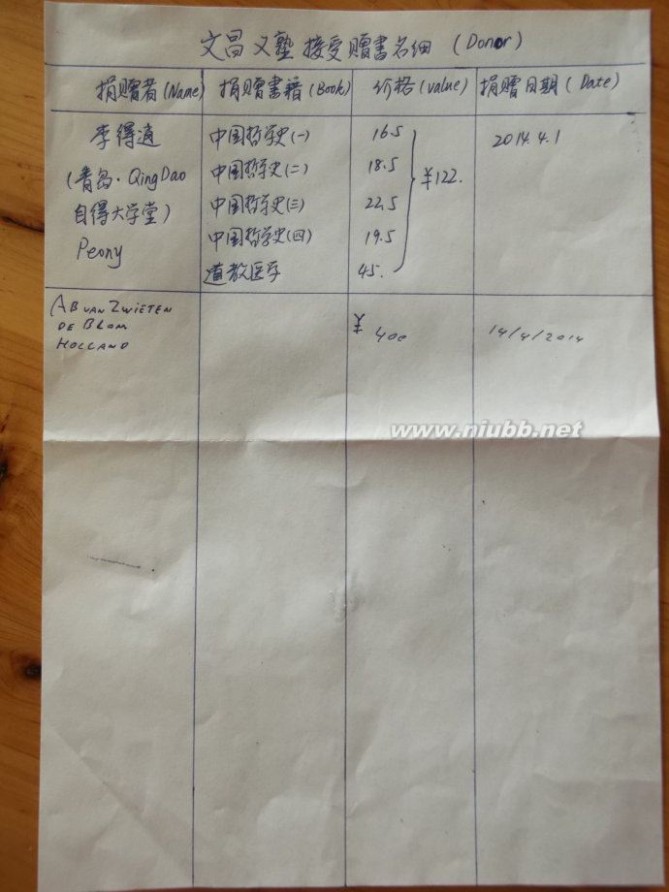 文昌义塾接受赠书名细 (Donor)
捐赠者(Name) 捐赠书籍(Book) 价格(value) 捐赠日期(Date)
李得道 中国哲学史(一) 16.5 2014.4.1
(青岛·QingDao 中国哲学史(二) 18.5 ¥122.
自得大学堂) 中国哲学史(三) 22.5
Peony 中国哲学史(四) 19.5
道教医学 45.
AB VAN ZWIETEN
DE BLOM ¥ 400 14/4/2014
HOLLAND
www.niubb.net